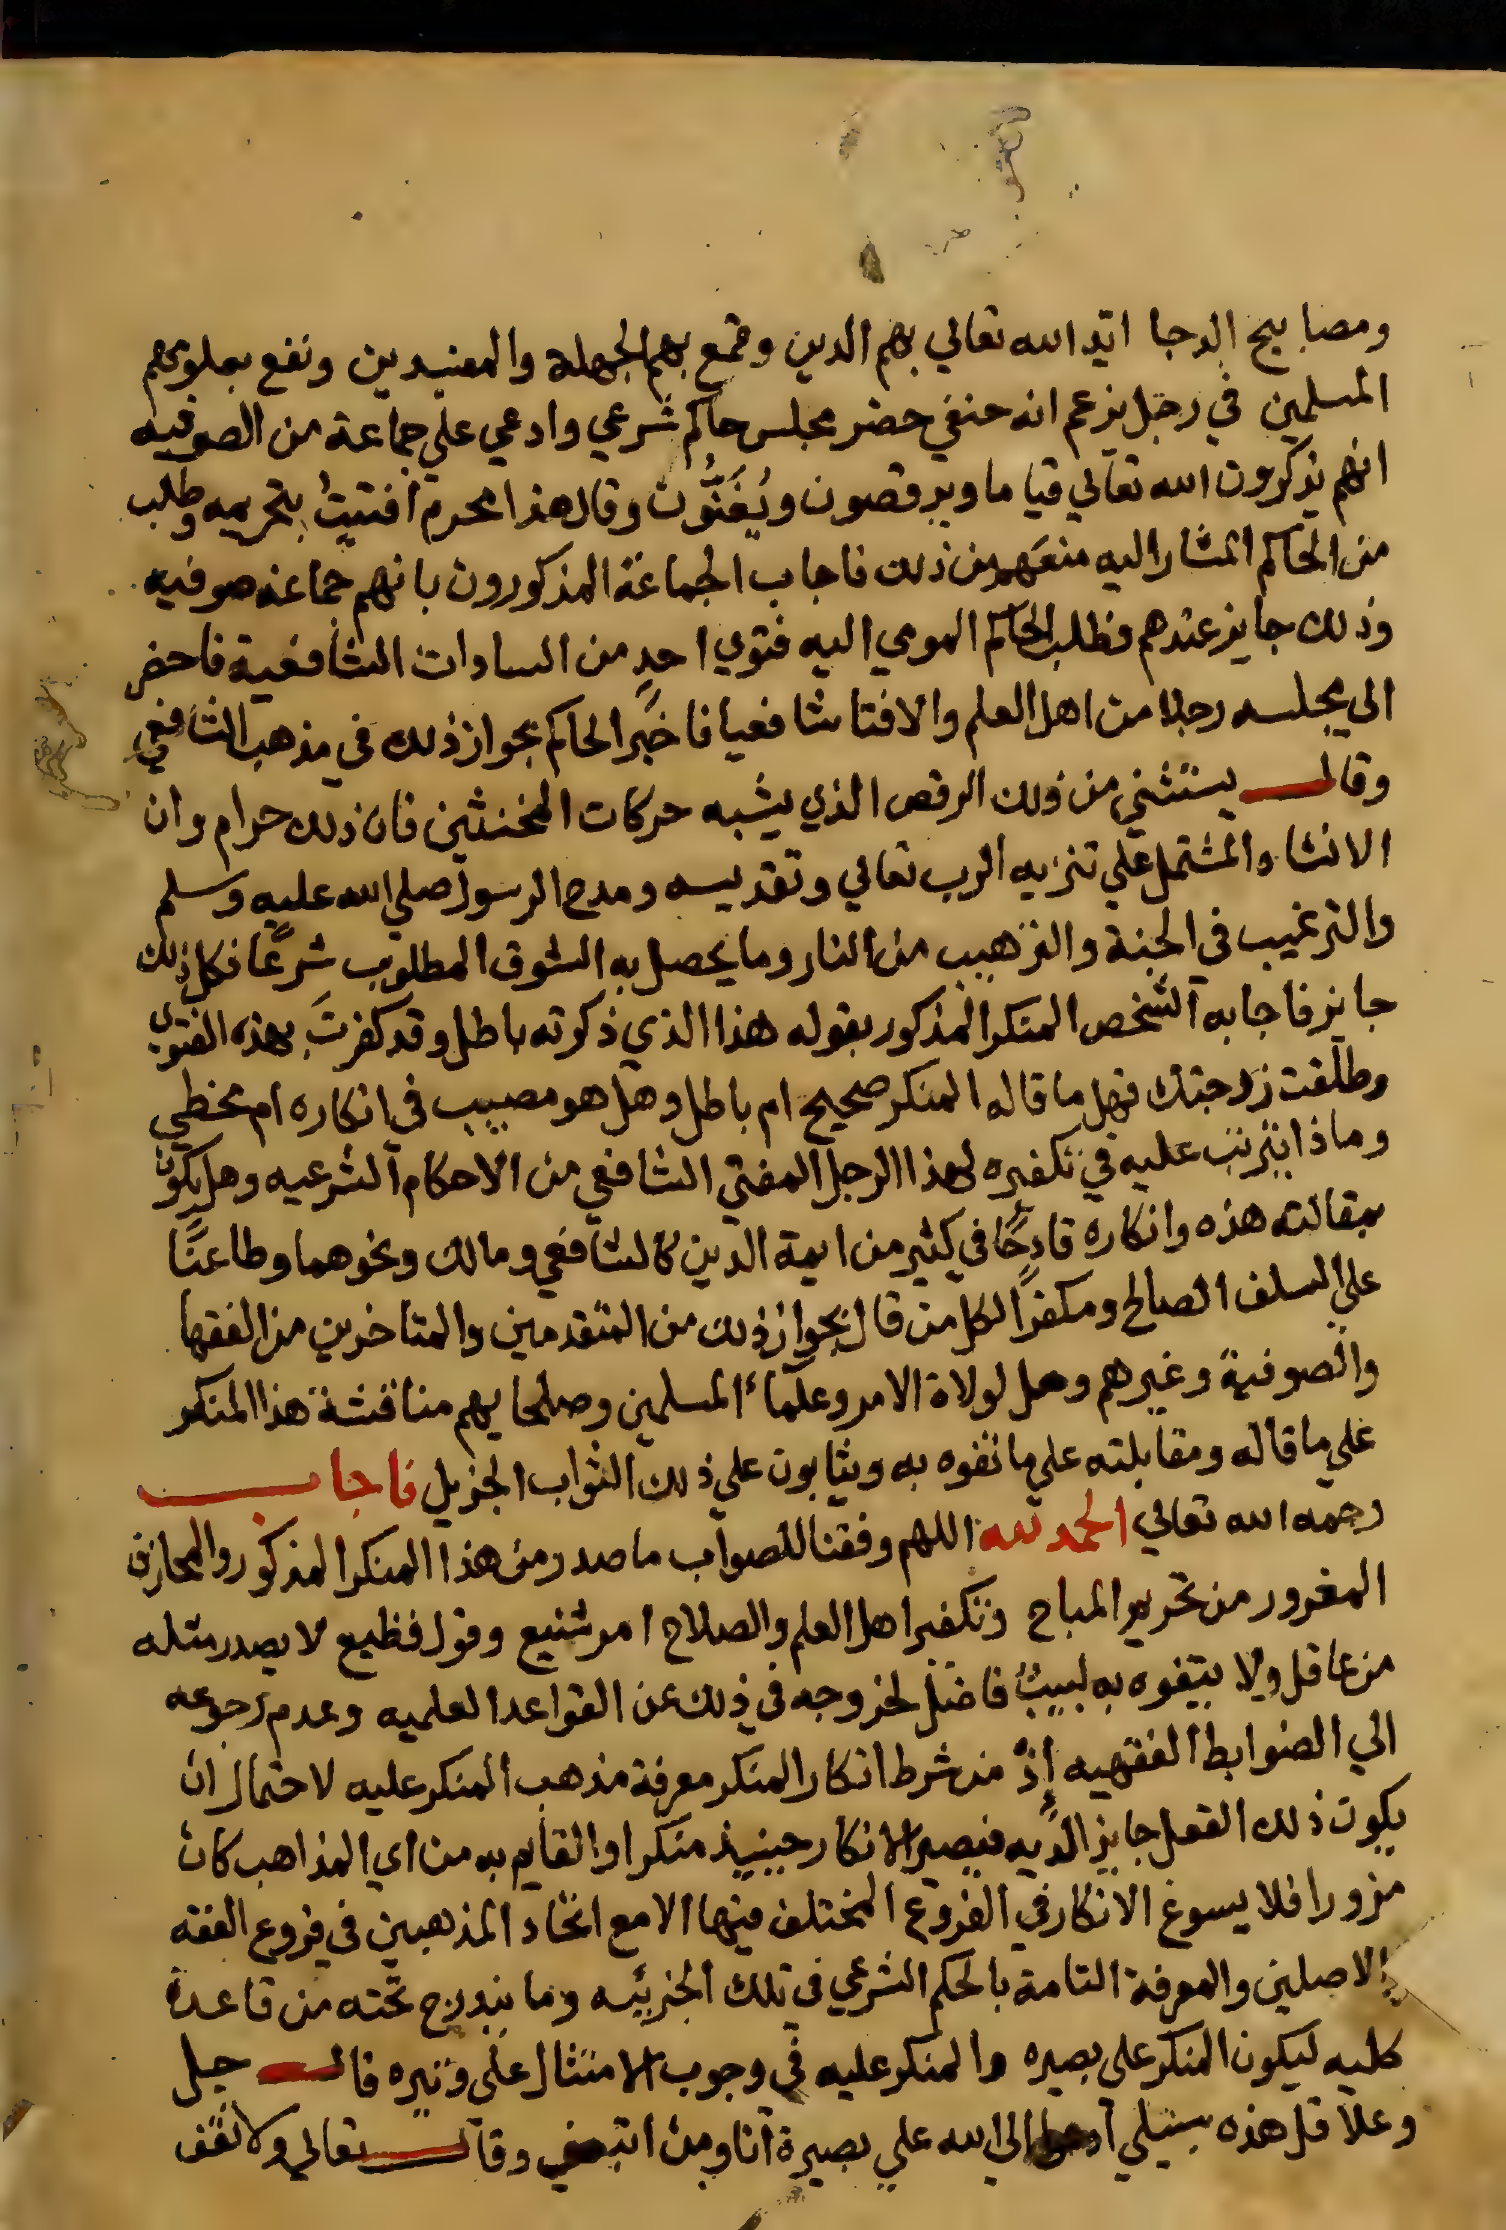 ومصابيح الدجا ايد الله تعالي بهم الدين وقمع بهم الجهلة والمعنيدين ونفع بعلومهم
المسلمين في رجل يزعم انه حنفي حضر مجلس حاكم شرعي وادعي علي جماعة من الصوفيه
انهم يذكرون الله تعالي قياما ويرقصون ويُغَنُّون وقال هذا محرم افتيتُ بتحريمه وطلب
من الحاكم المشار اليه منعهم من ذلك فاجاب الجماعة المذكورون بانهم جماعة صوفيه
وذلك جايز عندهم فطلب الحاكم المومي اليه فتوي احدٍ من السادات الشافعية فاحضر
الي مجلسه رجلا من اهل العلم والافتا شافعيا فاخبر الحاكم بجواز ذلك في مذهب الشافعي
وقال يستثني من ذلك الرقص الذي يشبه حركات المخنثين فان ذلك حرام وان
الانشاد المشتمل علي تنزيه الرب تعالي وتقديسه ومدح الرسول صلي الله عليه وسلم
والترغيب في الجنة والترهيب من النار وما يحصل به الشوق المطلوب شرعًا فكل ذلك
جايز فاجابه الشخص المنكر المذكور بقوله هذا الذي ذكرته باطل وقد كفرتَ بهذه الفتوي
وطلقت زوجتك فهل ما قاله المنكر صحيح ام باطل وهل هو مصيب في انكاره ام مخطي
وماذا يترتب عليه في تكفيره لهذا الرجل المفتي الشافعي من الاحكام الشرعيه وهل يكون
بمقالته هذه وانكاره قادحًا في كثير من ايمة الدين كالشافعي ومالك ونحوهما وطاعنًا
علي السلف الصالح ومكفرًا لكل من قال بجواز ذلك من المتقدمين والمتاخرين من الفقها
والصوفية وغيرهم وهل لولاة الامر وعلماء المسلمين وصلحايهم مناقشة هذا المنكر
علي ما قاله ومقابلته علي ما تفوه به ويثابون علي ذلك الثواب الجزيل فاجاب
رحمه الله تعالي الحمد لله اللهم وفقنا للصواب ما صدر من هذا المنكر المذكور والمجازف
المغرور من تحريم المباح وتكفير اهل العلم والصلاح امر شنيع وقول فظيع لا يصدر مثله
من عاقل ولا يتفوه به لبيبٌ فاضل لخروجه في ذلك عن القواعد العلميه وعدم رجوعه
الي الضوابط الفقهيه إذْ من شرط انكار المنكر معرفة مذهب المنكر عليه لاحتمال ان
يكون ذلك الفعل جايز الديه فيصير الانكار حينيذ منكرا والقايم به من اي المذاهب كان
مزورا فلا يسوغ الانكار في الفروع المختلف فيها الا مع اتحاد المذهبين في فروع الفقه
الاصلين والمعرفة التامة بالحكم الشرعي في تلك الجزئيه وما يندرج تحته من قاعدة
كليه ليكون المنكر علي بصيره والمنكر عليه في وجوب الامتثال علي وتيره قال جل
وعلا قل هذه سبيلي ادعوا الي الله علي بصيرة انا ومن اتبعني وقال تعالي ولا تقف